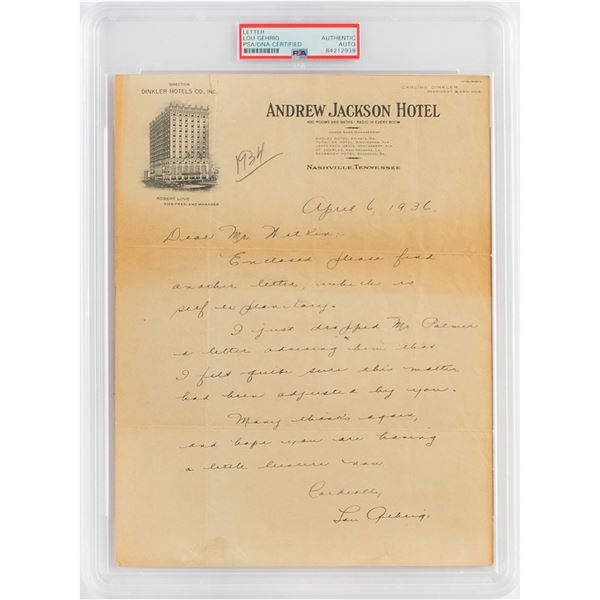 LETTER
LOU GEHRIG
PSA/DNA CERTIFIED
AUTHENTIC
AUTO
84212939
PSA
DIRECTION
DINKLER HOTELS CO., INC.
CARLING DINKLER
PRESIDENT &
ANDREW JACKSON HOTEL
400 ROOMS AND BATHS - RADIO IN EVERY ROOM
UNDER SAME MANAGEMENT
NASHVILLE, TENNESSEE
1934
ROBERT LOVE
VICE-PRES. AND MANAGER
April 6, 1936.
Dear Mr. Witkin;-
Enclosed please find
another letter, which is
self explanitory.
I just dropped Mr Palmer
a letter advising him that
I felt quite sure this matter
had been adjusted by you.
Many thanks again,
and hope you are having
a little leisure now
Cordially
Lou Gehrig.